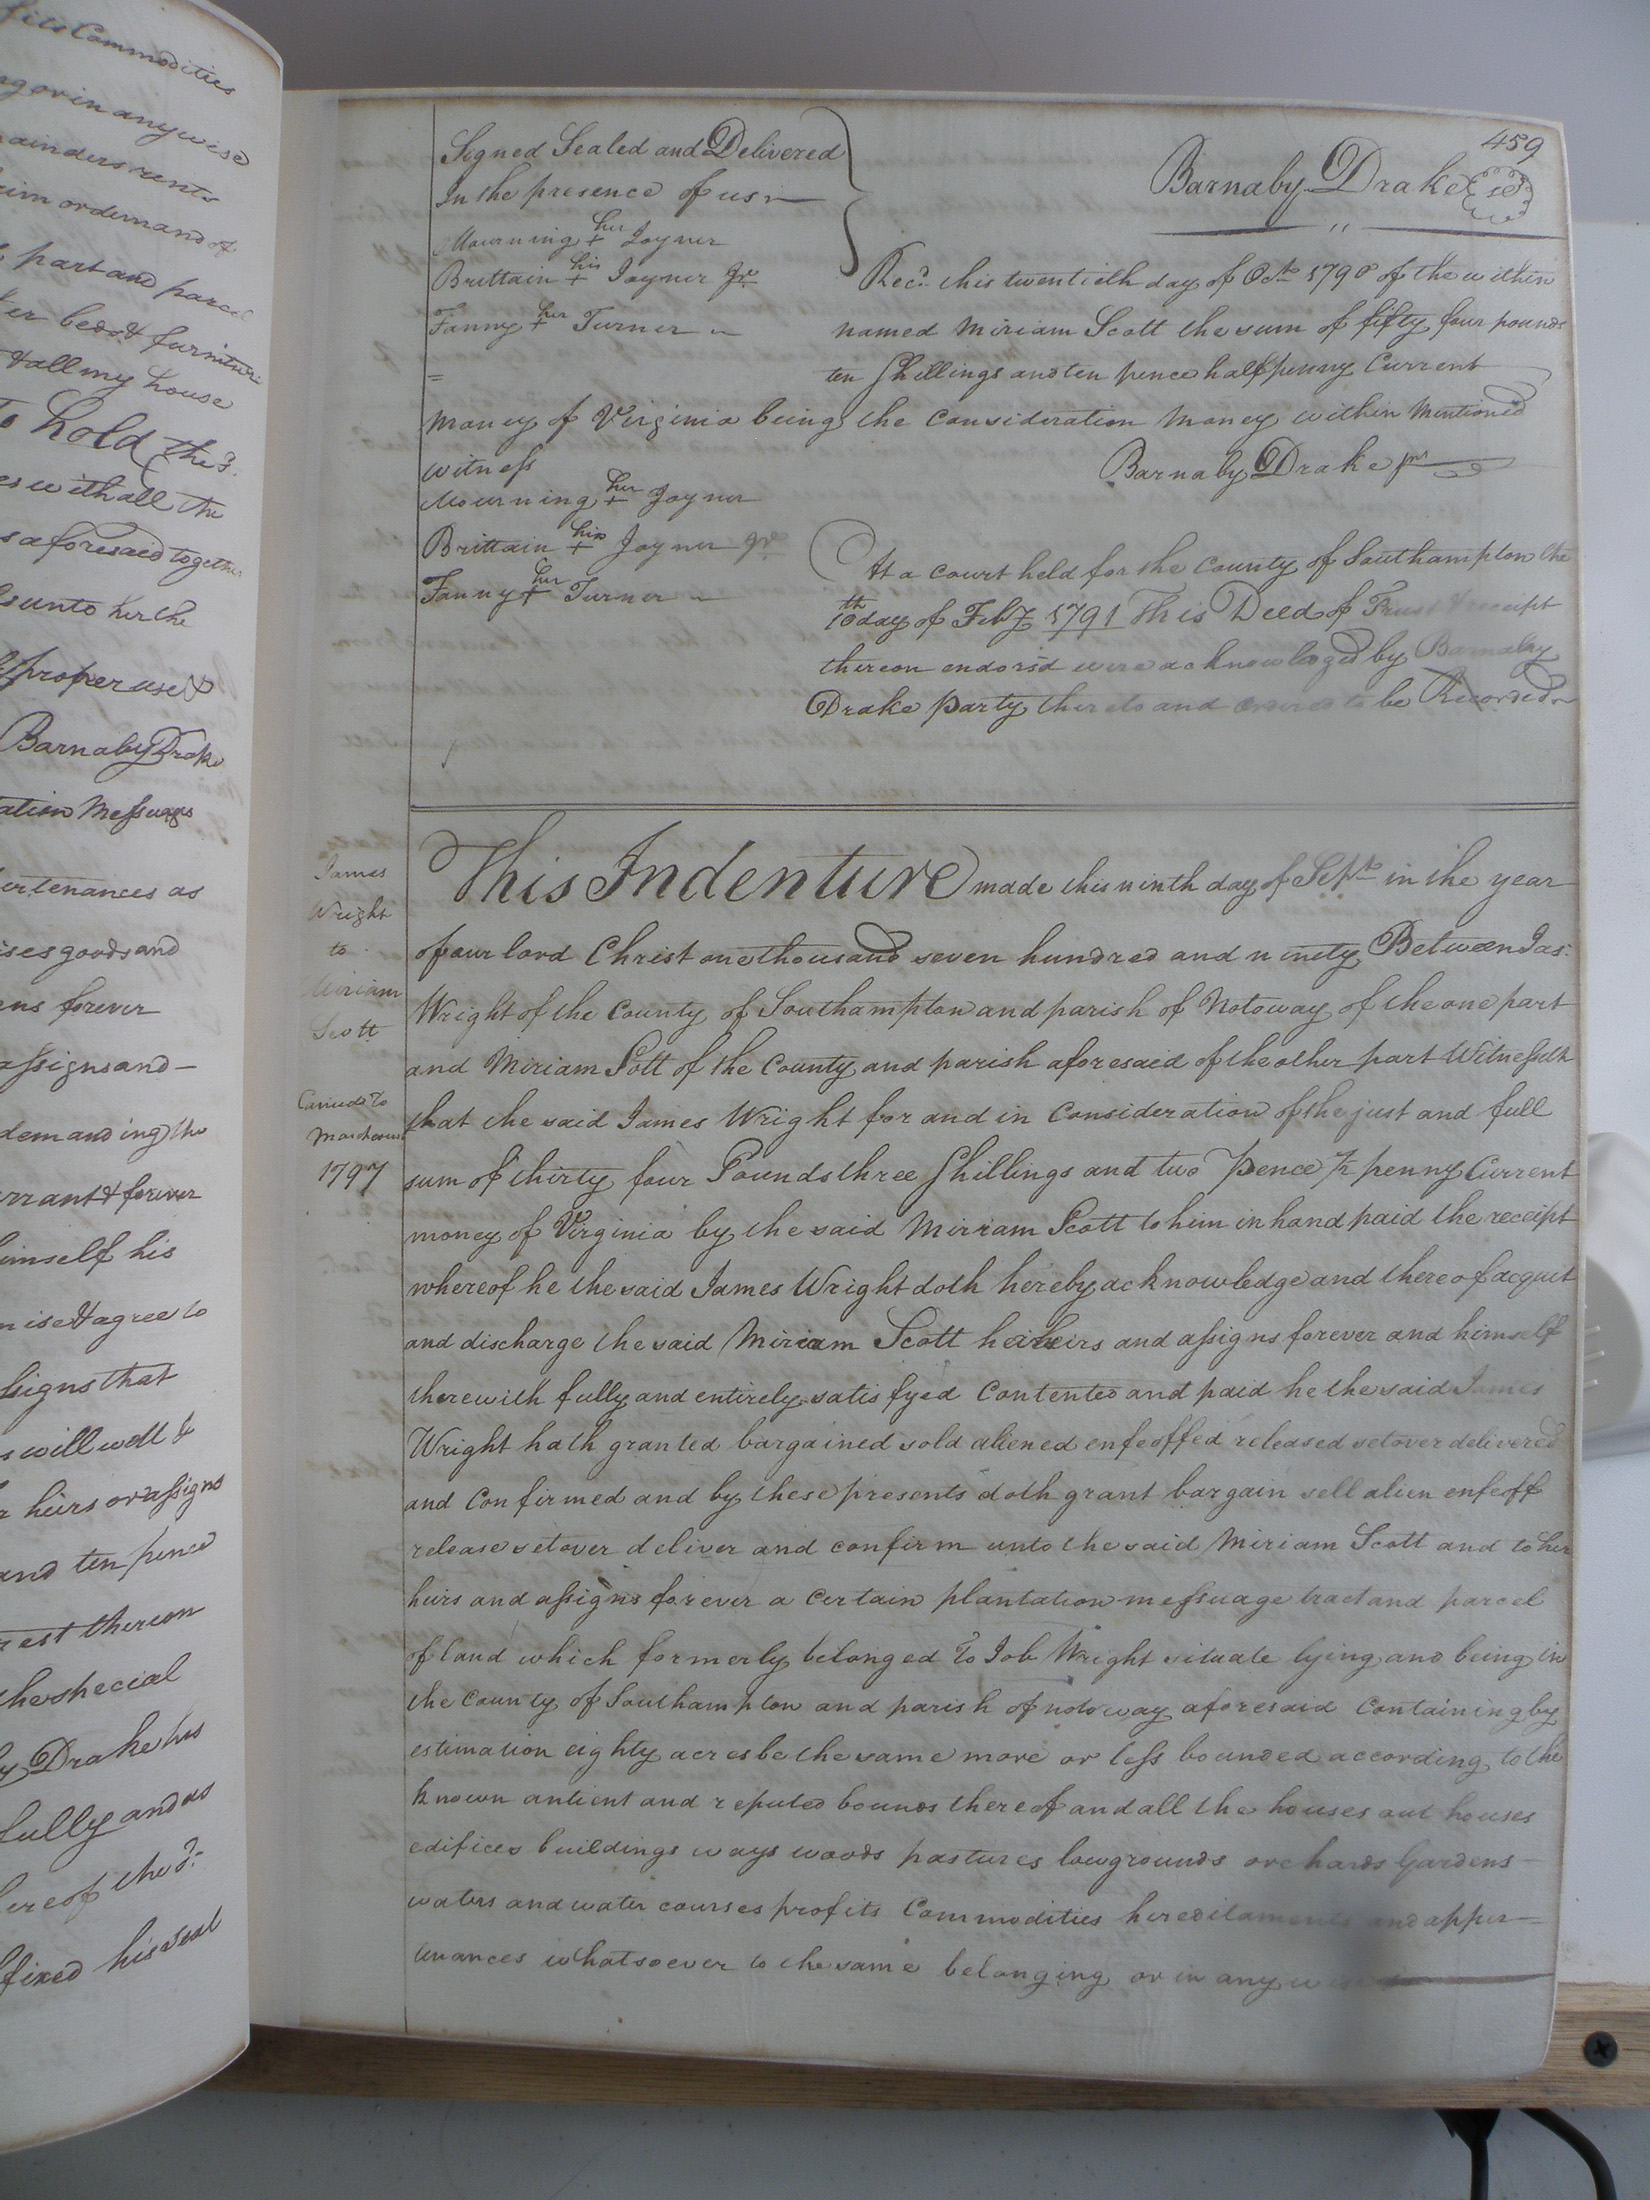 fits Commodities
ng or in any wise
mainders rents
aim or demand of
part and parcel
her beds & furniture
& all my house
To hold the s.
es with all the
s aforesaid together
s unto her the
proper use &
Barnaby Drake
ation Messuages
urtenances as
ises goods and
ens forever
assigns and —
demanding the
rrant & forever
himself his
mise & agree to
ssigns that
s will well &
r heirs or assigns
and ten pence
rest thereon
the special
y Drake has
fully and as
hereof the s:
ffixed his seal
459
Signed Sealed and Delivered
In the presence of us
Mourning her + Joyner
Brittain his + Joyner Jr
Fanny her + Turner
Barnaby Drake
Rec.d this twentieth day of Oct.r 1790 of the within
named Miriam Scott the sum of fifty four pounds
ten Shillings and ten pence half penny Current
money of Virginia being the Consideration Money within Mentioned
Witness
Barnaby Drake
Mourning her + Joyner
Brittain his + Joyner Jr
Fanny her + Turner
At a court held for the County of Southampton the
10th day of Feby 1791 This Deed of Trust & receipt
thereon endorsd were acknowledged by Barnaby
Drake party thereto and ordered to be Recorded
James
Wright
to
Miriam
Scott
1797
This Indenture made this ninth day of Sept.r in the year
of our lord Christ one thousand seven hundred and ninety Between Jas:
Wright of the County of Southampton and parish of Notoway of the one part
and Miriam Scott of the County and parish aforesaid of the other part Witnesseth
that the said James Wright for and in Consideration of the just and full
sum of thirty four Pounds three Shillings and two Pence ½ penny Current
money of Virginia by the said Miriam Scott to him in hand paid the receipt
whereof he the said James Wright doth hereby acknowledge and thereof acquit
and discharge the said Miriam Scott her heirs and assigns forever and himself
therewith fully and entirely satisfyed Contented and paid he the said James
Wright hath granted bargained sold aliened enfeoffed released set over delivered
and Confirmed and by these presents doth grant bargain sell alien enfeoff
release set over deliver and confirm unto the said Miriam Scott and to her
heirs and assigns forever a Certain plantation messuage tract and parcel
of land which formerly belonged To Job Wright situate lying and being in
the County of Southampton and parish of notoway aforesaid Containing by
estimation eighty acres be the same more or less bounded according to the
known antient and reputed bounds thereof and all the houses out houses
edifices buildings ways woods pastures lowgrounds orchards Gardens
waters and water courses profits Commodities hereditaments and appur—
tenances whatsoever to the same belonging or in any wise